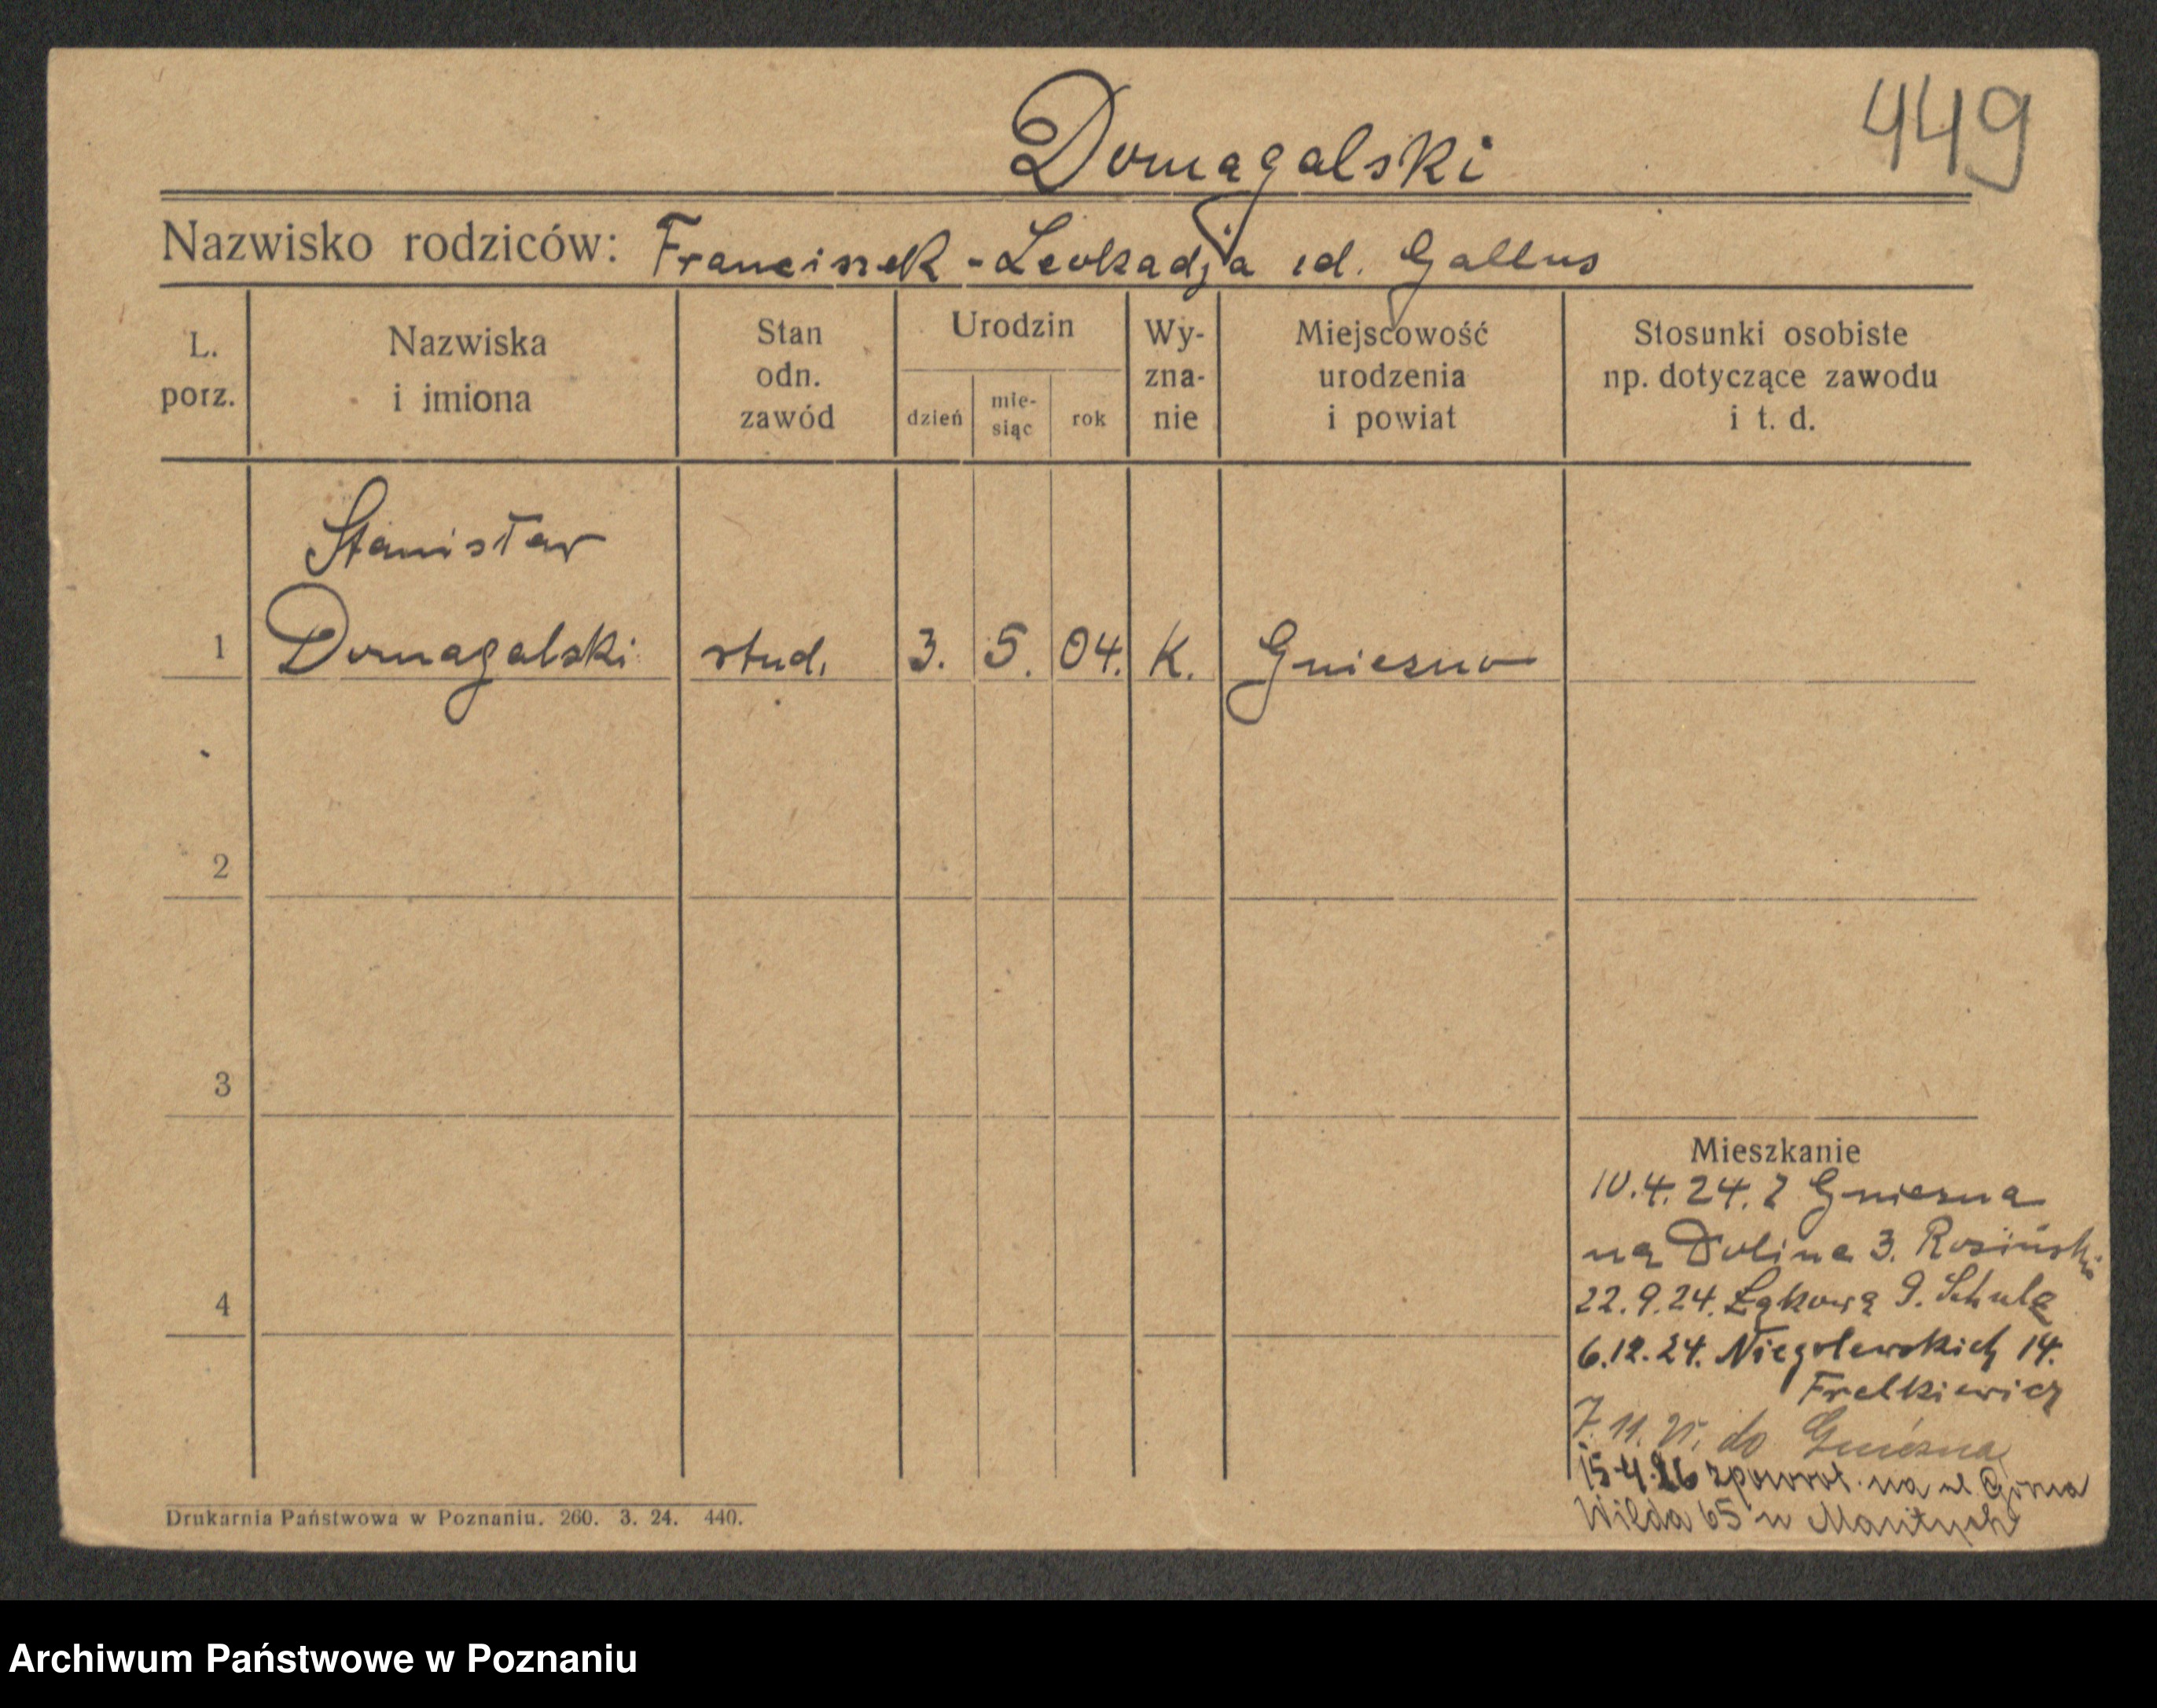 449
Domagalski
Nazwisko rodziców: Franciszek - Leokadja id. Gallus
L. porz.
Nazwiska i imiona
Stan odn. zawód
Urodzin
dzień
mie-siąc
rok
Wy-zna-nie
Miejscowość urodzenia i powiat
Stosunki osobiste np. dotyczące zawodu i t. d.
Stanisław
1 Domagalski stud. 3. 5. 04. K. Gniezno
2
3
4
Mieszkanie
10.4.24. z Gniezna
na Dolina 3. Rosiński
22.9.24. Łąkową 9. Schulz
6.12.24. Niegolewskich 14.
Frelkiewicz
7.11.25. do Gniezna
15.4.26 zpowrot. na ul. Górna
Wilda 65 u
Drukarnia Państwowa w Poznaniu. 260. 3. 24. 440.
Archiwum Państwowe w Poznaniu